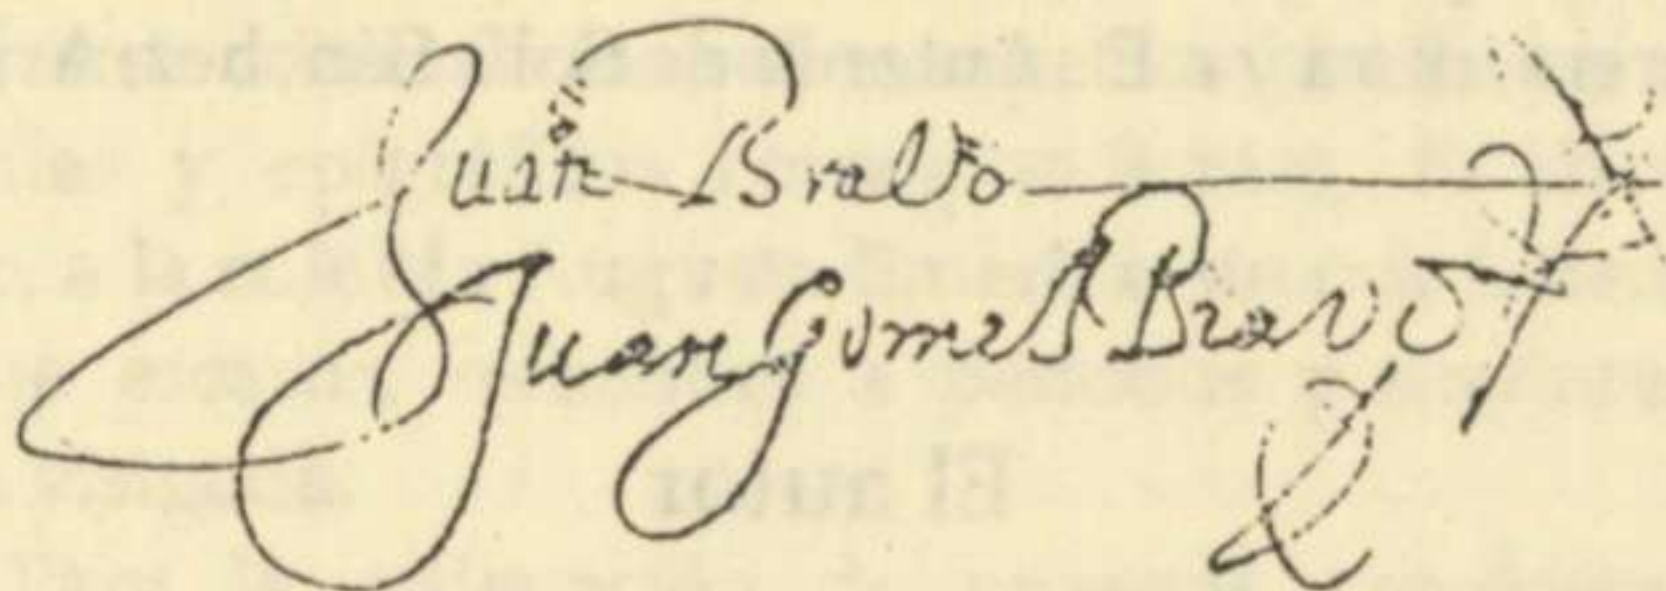 Juan Bravo
Juan Gomes Bravo